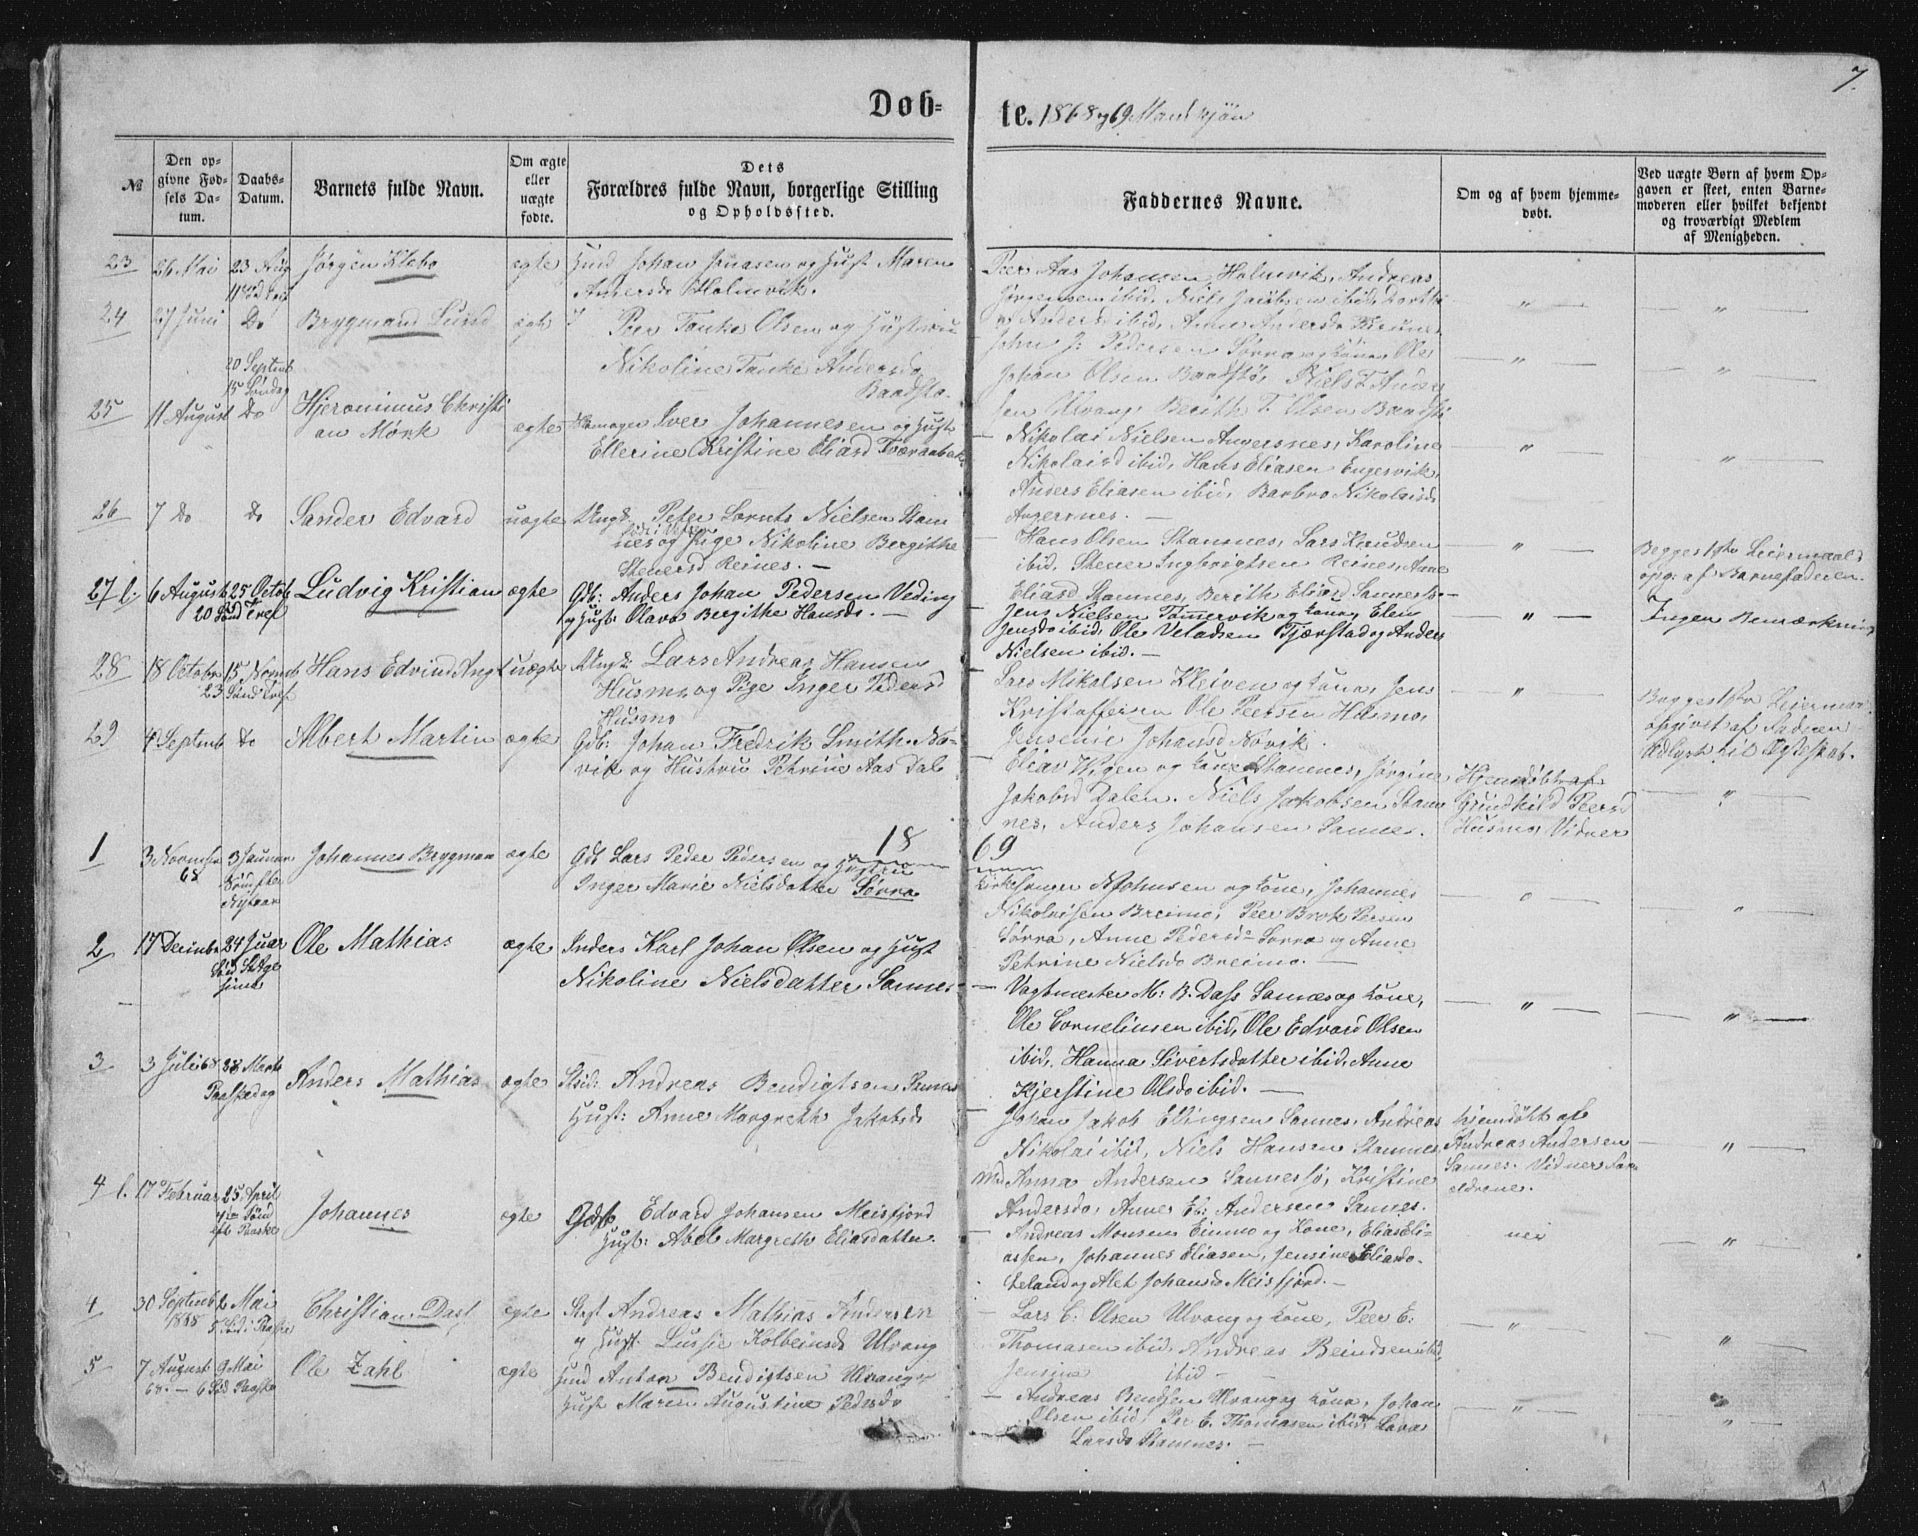 7.
Døb-
te. 1868 og 69 Mandkjön
№
Den op-
givne Fød-
sels Da-
tum.
Daabs-
Datum.
Barnets fulde Navn.
Om ægte
eller
uægte
fødte.
Dets
Forældres fulde Navn, borgerlige Stilling
og Opholdssted.
Faddernes Navne.
Om og af hvem hjemme-
døbt.
Ved uægte Børn af hvem Op-
gaven er skeet, enten Barne-
moderen eller hvilket bekjendt
og troværdigt Medlem
af Menigheden.
23 26 Mai 23 Aug Jörgen Klebo ægte Huusmd Johan Jonasen og Hust Maren
Andersd. Holmvik.
Peer Aas Johansen Holmvik, Andreas
Jörgensen ibid, Niels Jacobsen ibid, Dorthe
Andersd ibid, Anne Andersd
24 27 Juni Do Brygmand Lund ægte Peer Tanke Olsen og Hustru
Nikoline Tanke Andersd
Baadstø.
John J. Pedersen Sörra og kone, Ole
Johan Olsen Baadstø, Niels T. Ander
sen Ulvang, Berith T. Olsen Baadstø
25 11 August 20 Septemb
15 Søndag
Do Hjeronimus Christi
an Mörk ægte Iver Johannesen og Hust
Ellerine Kristine Eliasd Tværaabak
Nikolai Nielsen Angersnes, Karoline
Nikolaisd ibid, Hans Eliasen Engesvik,
Anders Eliasen ibid, Barbro Nikolaisd
Angersnes.
26 7 Do Do Sander Edvard uægte Ungk. Peter Lornts Nielsen Stam
nes og Pige Nikoline Bergithe
Stenersd Reines.
Hans Olsen Stamnes, Lars Knudsen
ibid. Stener Ingbrigtsen Reines, Anne
Eliasd Stamnes, Berith Eliasd Sannes
Begges 1ste Leiermaal
opg. af Barnefaderen.
27 l. 6 August 25 Octob
20 Sönd Tref Ludvig Kristian ægte Gdb: Anders Johan Pedersen Veding
og Hust: Olava Bergithe Hansd.
Jens Nielsen Tømmervik og kone, Elen
Jensd ibid, Ole Veladsen Tjærstad og Anders
Nielsen ibid.
Ingen Bemærkning
28 18 Octobr 15 Novmb
23 Sönd Tref Hans Edvin Angt uægte Ungk: Lars Andreas Hansen
Husmo, og Pige Inger Pedersd
Husmo
Lars Mikalsen Kleiven og kone, Jens
Kristoffersen Ole Peersen Husmo,
Jensine Johansd Novik.
Begges 1ste Leiermaal
opgivet af Faderen
Udlyst til Ægteskab.
29 4 Septemb do Albert Martin ægte Gdb: Johan Fredrik Smith No-
vik og Hustru Petrine Aas Dal
Eliav Wigen og kone Stamnes, Jörgine
Jakobsd Dalen. Niels Jakobsen Stam
nes, Anders Johansen Sannes.
Hjemdöbt af
Gundhild Peersd
Husmo, Vidner
18
69
1 3 Novmbr 68 3 Januar
Nytaar Johannes Brygman ægte Gdb Lars Peder Pedersen og Hustru
Inger Marie Nielsdatter Sörra
Kirkesanger N Johnsen og kone, Johannes
Nikolaisen Breimo, Peer Brok Persen
Sörra, Anne Pedersd Sörra og Anne
Petrine Nielsd Breimo.
2 17 Decmbr 24 Juar Ole Mathias ægte Inders Karl Johan Olsen og Hust
Nikoline Nielsdatter Sannes
Vagtmester M. B. Dass Sannes og kone,
Ole Cornelinsen ibid, Ole Edvard Olsen
ibid, Hanna Sivertsdatter ibid, Anne
Kjerstine Olsd ibid.
3 3 Juli 68 28 Marts
Paaskedag Anders Mathias ægte Strd: Andreas Bendigtsen Sannes
Hust: Anne Margreth Jakobsd
Johan Jakob Ellingsen Sannes, Andreas
Nikolai ibid, Niels Hansen Stamnes
Md Anna Andersen Sannes, Kristine
Andersd, Anne El: Andersen Sannes.
hjemdöbt af
Andreas Andersen
Sannes. Vidner For
ældrene.
4 l. 17 Februar 25 April
4de Sönd
eft Paaske Johannes ægte Gdb Edvard Johansen Meisfjord
Hust: Abel Margreth Eliasdatter
Andreas Monsen Einmo og Kone, Elias Eli-
assen, Johannes Eliasen, Jensine Eliasd.
Leland og Alet Johansd Meisfjord.
nei
4 30 Septemb
1868 2 Mai Christian Dass ægte Strd Andreas Mathias Andersen
og Hust. Lussie Kolbeinsd Ulvang
Lars C. Olsen Ulvang og kone, Peer E.
Thomasen ibid, Andreas Beindsen ibid,
Jensine ibid
5 7 August
68. 9 Mai
6 Sönd Paaske Ole Zahl ægte Huusmd Anton Bendigtsen Ulvang
Hust Maren Augustine Pedersd
Andreas Bendsen Ulvang og kone, Johan
Olsen ibid, Per E. Thomasen ibid, Lava
Larsd Stamnes.